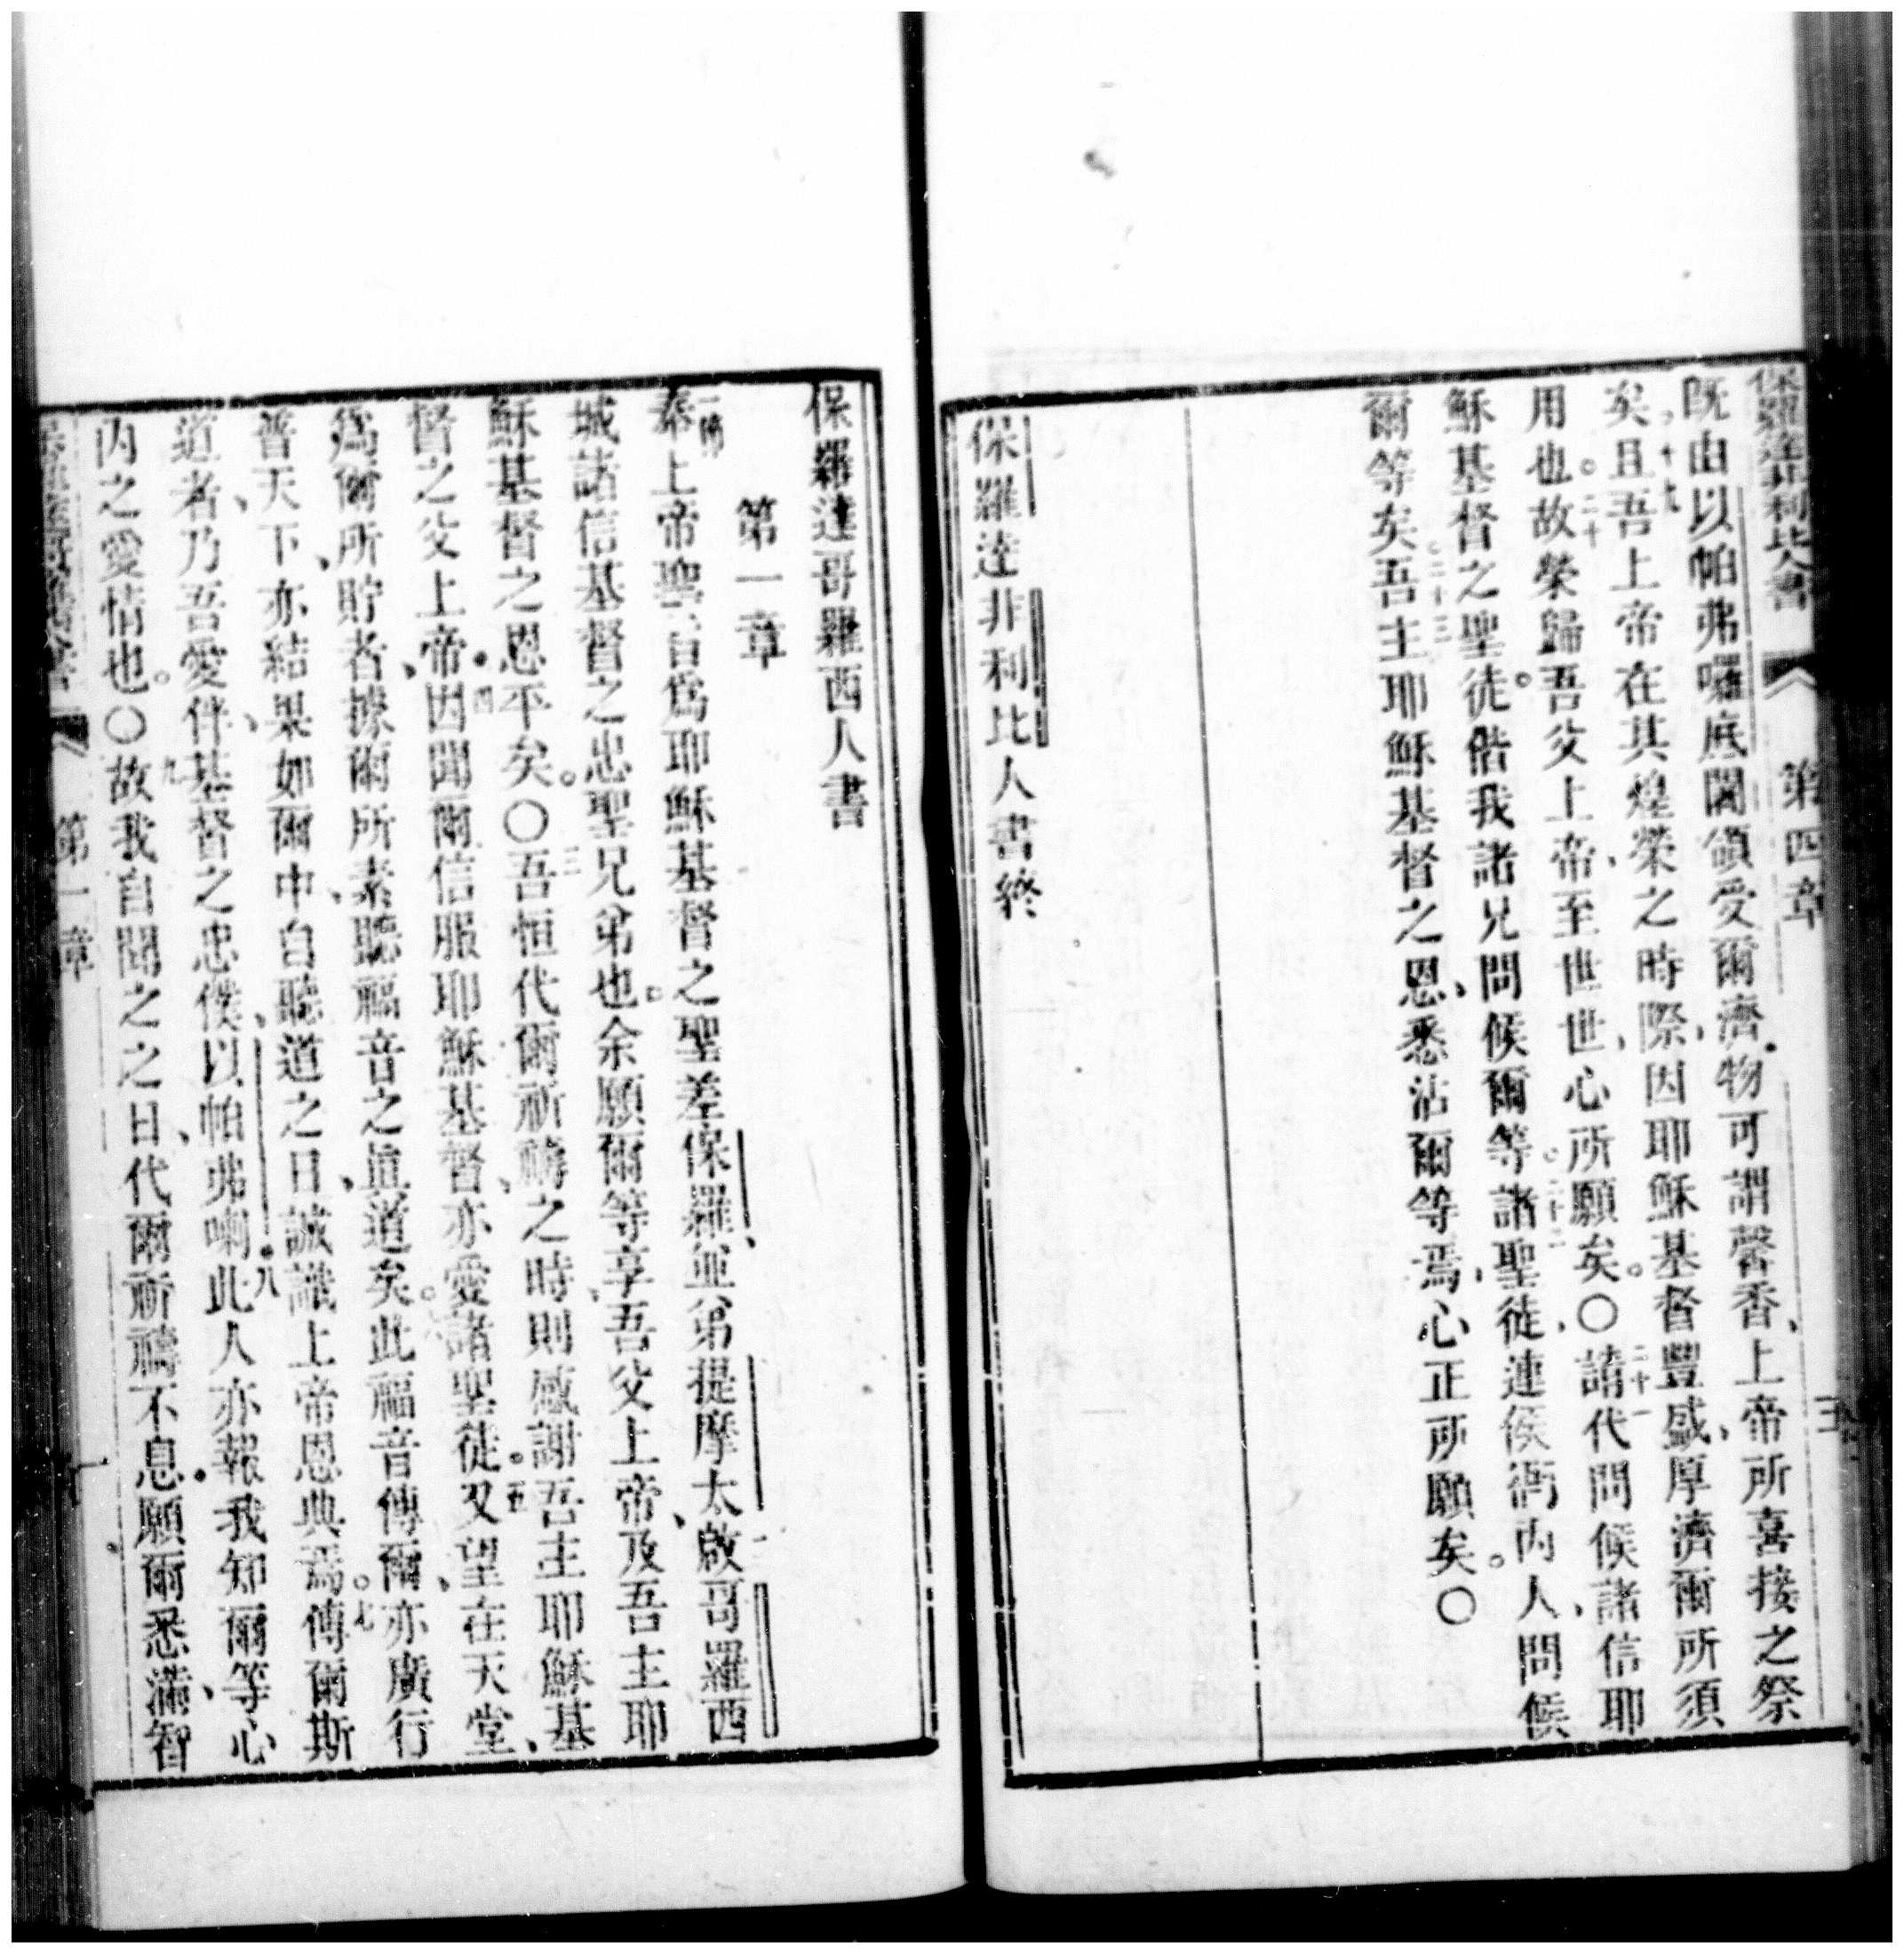 保羅達非利比人書 第四章 三
既由以帕弗囉底閣領受爾濟物可謂馨香、上帝所喜接之祭
矣。十九且吾上帝在其煌榮之時際、因耶穌基督豐盛、厚濟爾所須
用也。二十故榮歸吾父上帝、至世世、心所願矣。〇二十一請代問候諸信耶
穌基督之聖徒。偕我諸兄問候爾等。二十二諸聖徒、連侯衙內人、問候
爾等矣。二十三吾主耶穌基督之恩、悉沾爾等焉、心正所願矣。〇
保羅達非利比人書終
保羅達哥羅西人書
第一章
一節奉上帝聖旨爲耶穌基督之聖差保羅、並弟提摩太、二啟哥羅西
城諸信基督之忠聖兄弟也。余願爾等享吾父上帝、及吾主耶
穌基督之恩平矣。〇三吾恒代爾祈禱之時、則感謝吾主耶穌基
督之父上帝。四因聞爾信服耶穌基督、亦愛諸聖徒。五又望在天堂、
爲爾所貯者、據爾所素聽福音之眞道矣。六此福音傳爾、亦廣行
普天下、亦結果如爾中、自聽道之日、誠識上帝恩典焉。七傳爾斯
道者、乃吾愛伴、基督之忠僕、以帕弗喇。八此人亦報我知爾等心
內之愛情也。〇九故我自聞之之日、代爾祈禱不息。願爾悉滿智
第一章 一